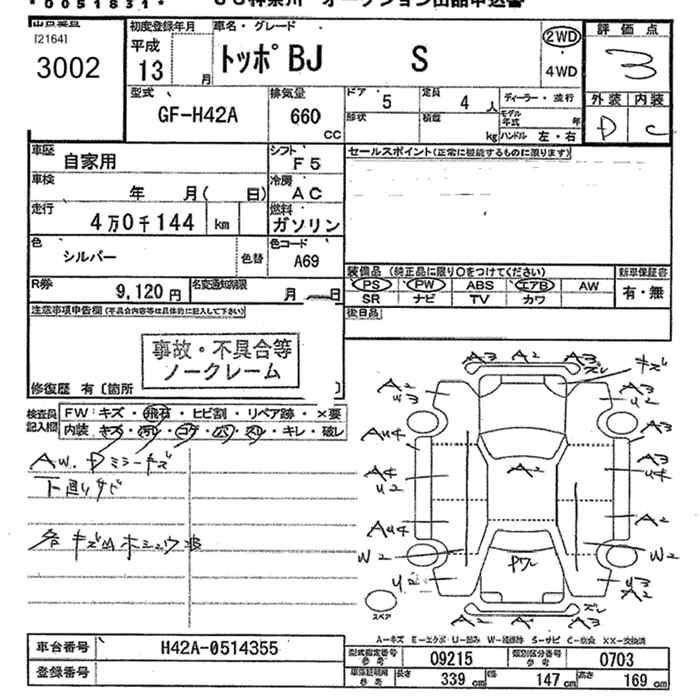 *0051831*
[2164]
3002
初度登録年月 車名・グレード
平成
13 月
トッポBJ S
2WD
4WD
評価点
3
外装 内装
D C
型式 GF-H42A
排気量 660 cc
ドア 5 定員 4 人
形状 積載 kg
ディーラー・並行
モデル年式 年
ハンドル 左・右
車歴 自家用
シフト F5
車検 年 月( 日)
冷房 AC
走行 4万0千144 km
燃料 ガソリン
色 シルバー 色替
色コード A69
R券 9,120円
名変通知期限 月 日
セールスポイント(正常に機能するものに限ります)
装備品(純正品に限り○をつけてください) 新車保証書
PS PW ABS エアB AW
SR ナビ TV カワ
有・無
後日品
注意事項申告欄(不具合内容等は具体的に記入して下さい)
事故・不具合等
ノークレーム
修復歴 有〔箇所
検査員記入欄
FW:キズ・飛石・ヒビ割・リペア跡・×要
内装:キズ・汚れ・コゲ・穴・スリ・キレ・破レ
AW. Dミラーキズ
下廻りサビ
A3 A2 A3
キズ
A2
U3
A3
U2
AU4
A3
A4
U2
A3
U4
A2
AU4
A2
W2
W2
PW2
U2
U3
A2
A2 A2
スペア
A-キズ E-エクボ U-凹み W-補修跡 S-サビ C-腐食 XX-交換済
車台番号 H42A-0514355
登録番号
型式指定番号 参考 09215
類別区分番号 参考 0703
長さ 339 cm 幅 147 cm 高さ 169 cm